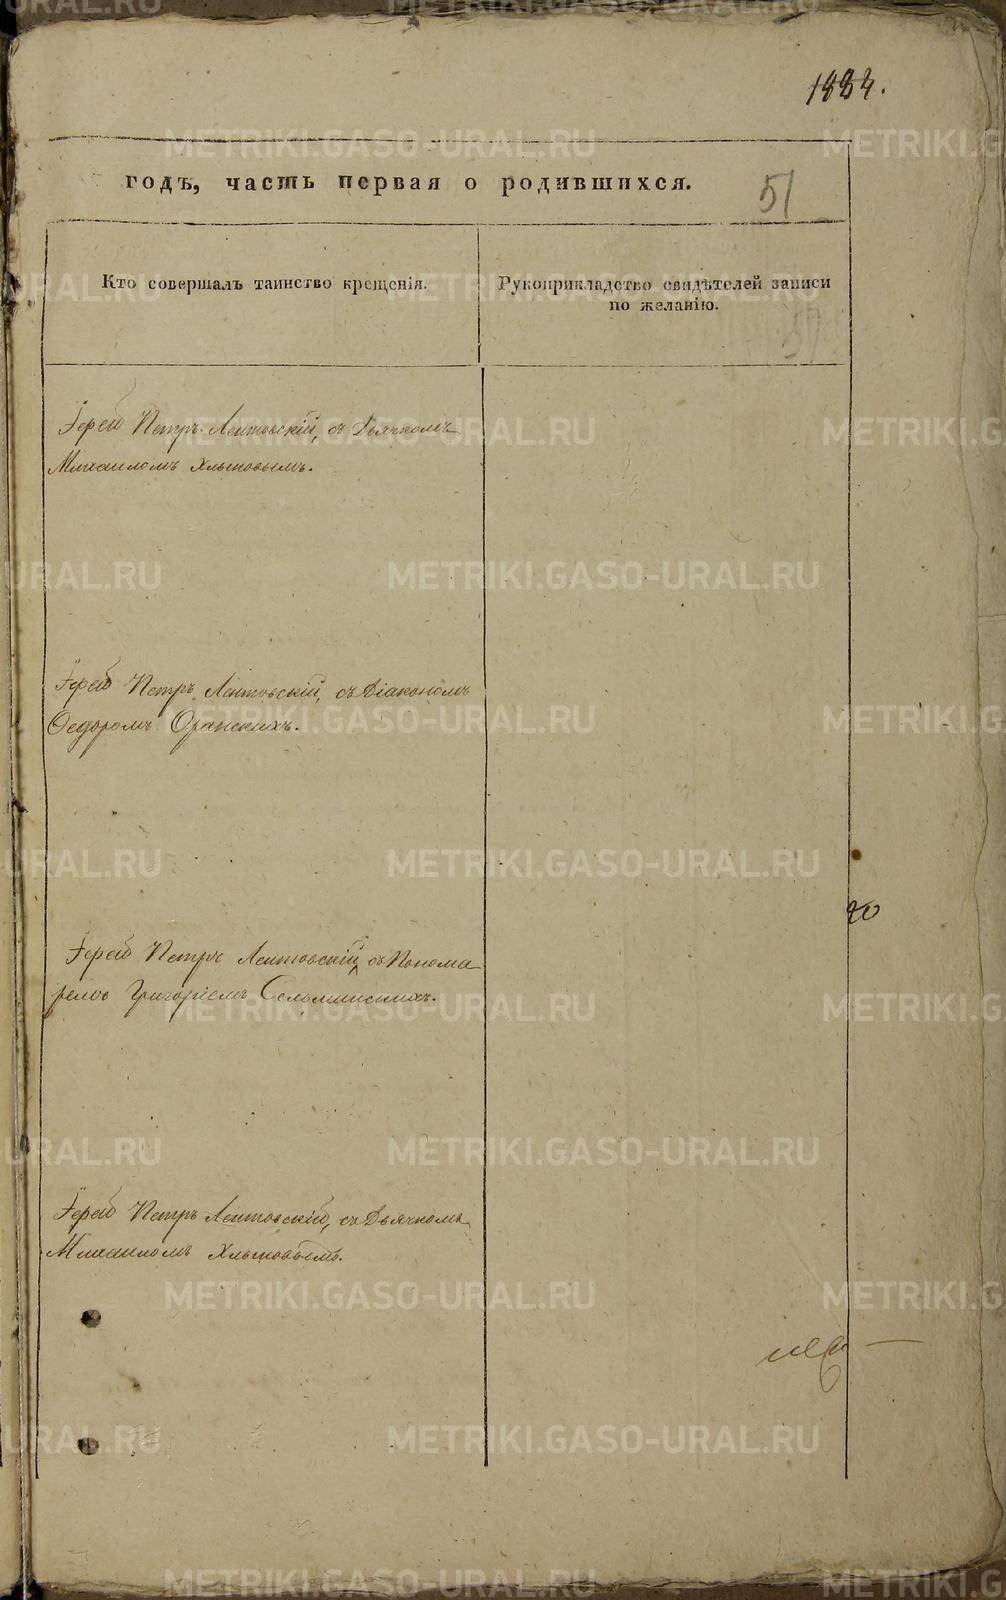 1884.
годъ, часть первая о родившихся.
51
Кто совершалъ таинство крещенія.
Рукоприкладство свидѣтелей записи
по желанію.
Іерей Петръ Лентовскій, съ Дьячкомъ
Михаиломъ Хлыновымъ.
Іерей Петръ Лентовскій, съ Діакономъ
Ѳедоромъ
Іерей Петръ Лентовскій, съ Понома
ремъ Григоріемъ
Іерей Петръ Лентовскій, съ Дьячкомъ
Михаиломъ Хлыновымъ.
METRIKI.GASO-URAL.RU